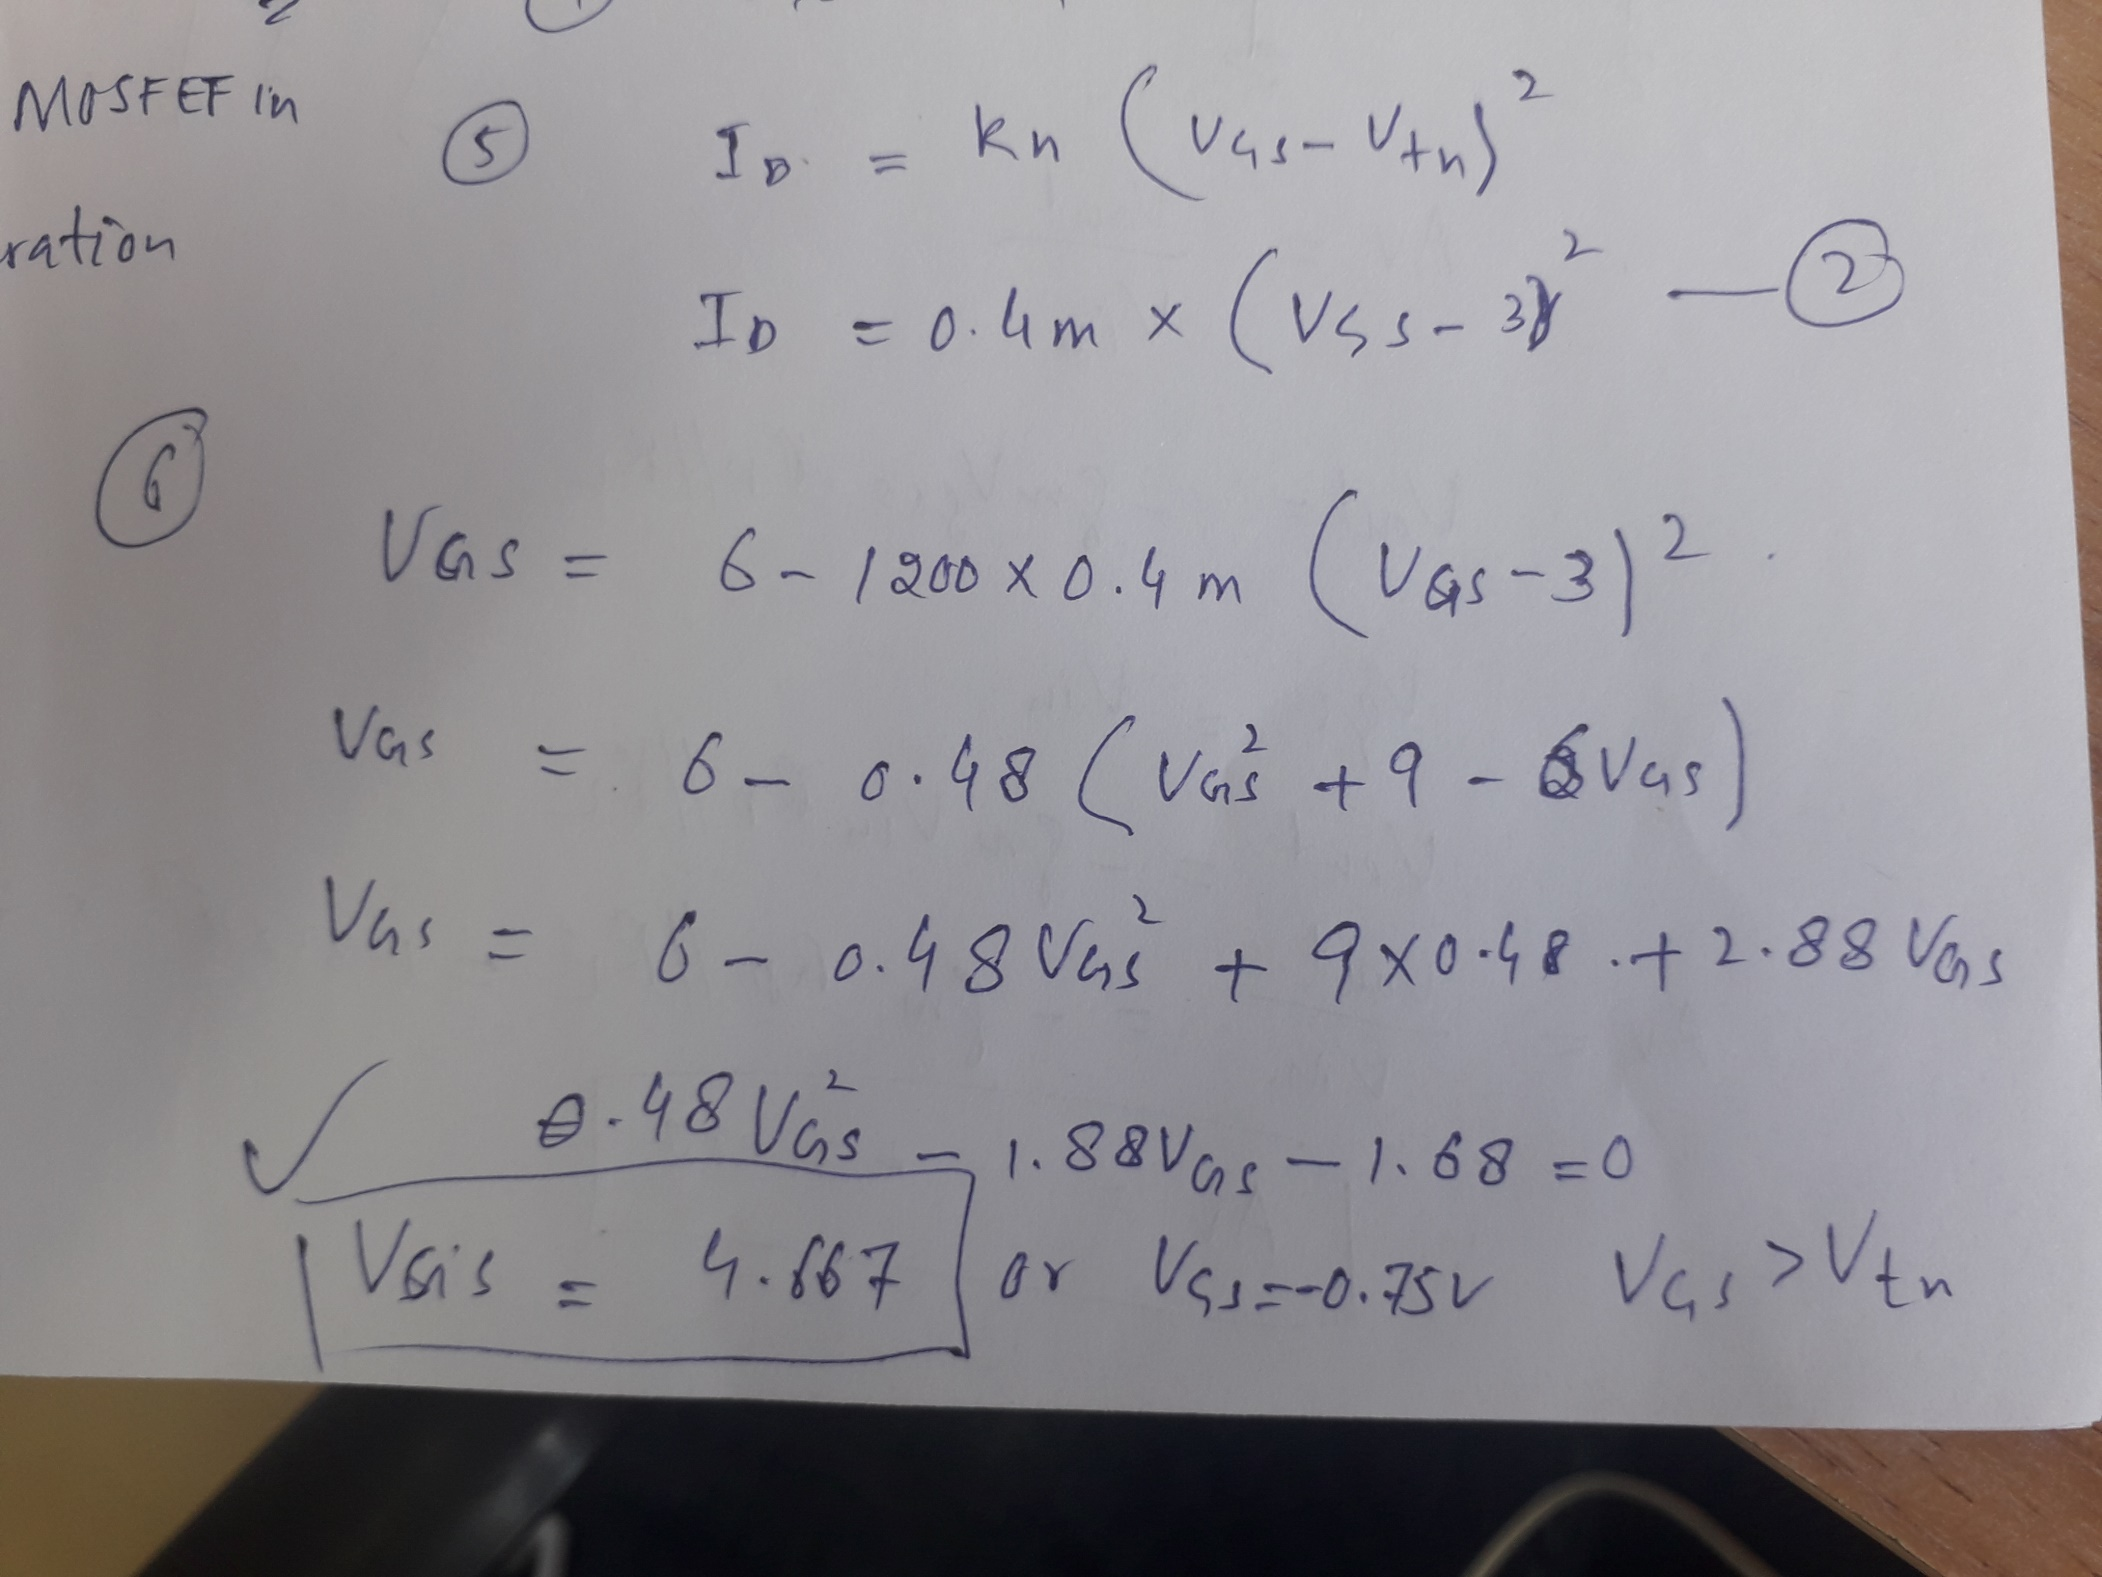 MOSFET in
ration
⑤ I_D = Kn (V_GS - V_tn)²
I_D = 0.4m × (V_GS - 3)² — ②
⑥
V_GS = 6 - 1200 × 0.4m (V_GS - 3)²
V_GS = 6 - 0.48 (V_GS² + 9 - 6V_GS)
V_GS = 6 - 0.48 V_GS² + 9 × 0.48 + 2.88 V_GS
✓ 0.48 V_GS² - 1.88V_GS - 1.68 = 0
V_GS = 4.667 or V_GS = -0.75V V_GS > V_tn